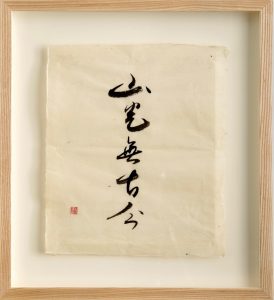 山光無古今